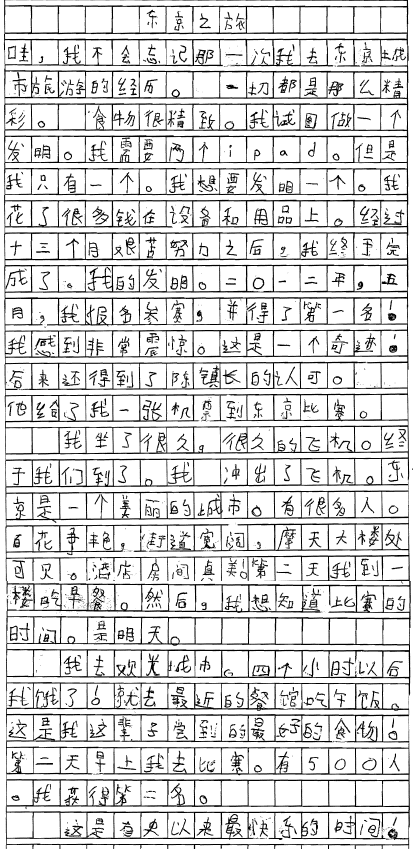 东京之旅
哇，我不会忘记那一次我去东京城
市旅游的经历。一切都是那么精
彩。食物很精致。我试图做一个
发明。我需要两个ipad。但是
我只有一个。我想要发明一个。我
花了很多钱在设备和用品上。经过
十三个月艰苦努力之后，我终于完
成了。我的发明。二0一二年，五
月，我报名参赛，并得了第一名！
我感到非常震惊。这是一个奇迹！
后来还得到了陈镇长的认可。
他给了我一张机票到东京比赛。
我坐了很久，很久的飞机。终
于我们到了。我冲出了飞机。东
京是一个美丽的城市。有很多人。
百花争艳，街道宽阔，摩天大楼处
可见。酒店房间真美！第二天我到一
楼吃早餐。然后，我想知道比赛的
时间。是明天。
我去观光城市。四个小时以后
我饿了！就去最近的餐馆吃午饭。
这是我这辈子尝到的最好的食物！
第二天早上我去比赛。有500人
。我获得第二名。
这是有史以来最快乐的时间！